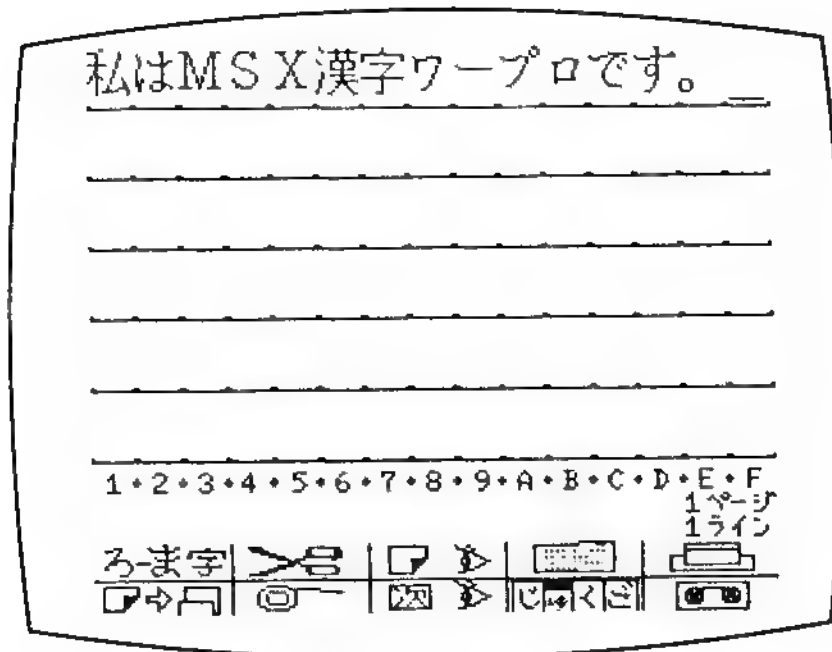 私はMSX漢字ワープロです。_
1・2・3・4・5・6・7・8・9・A・B・C・D・E・F
1ページ
1ライン
ろーま字
次